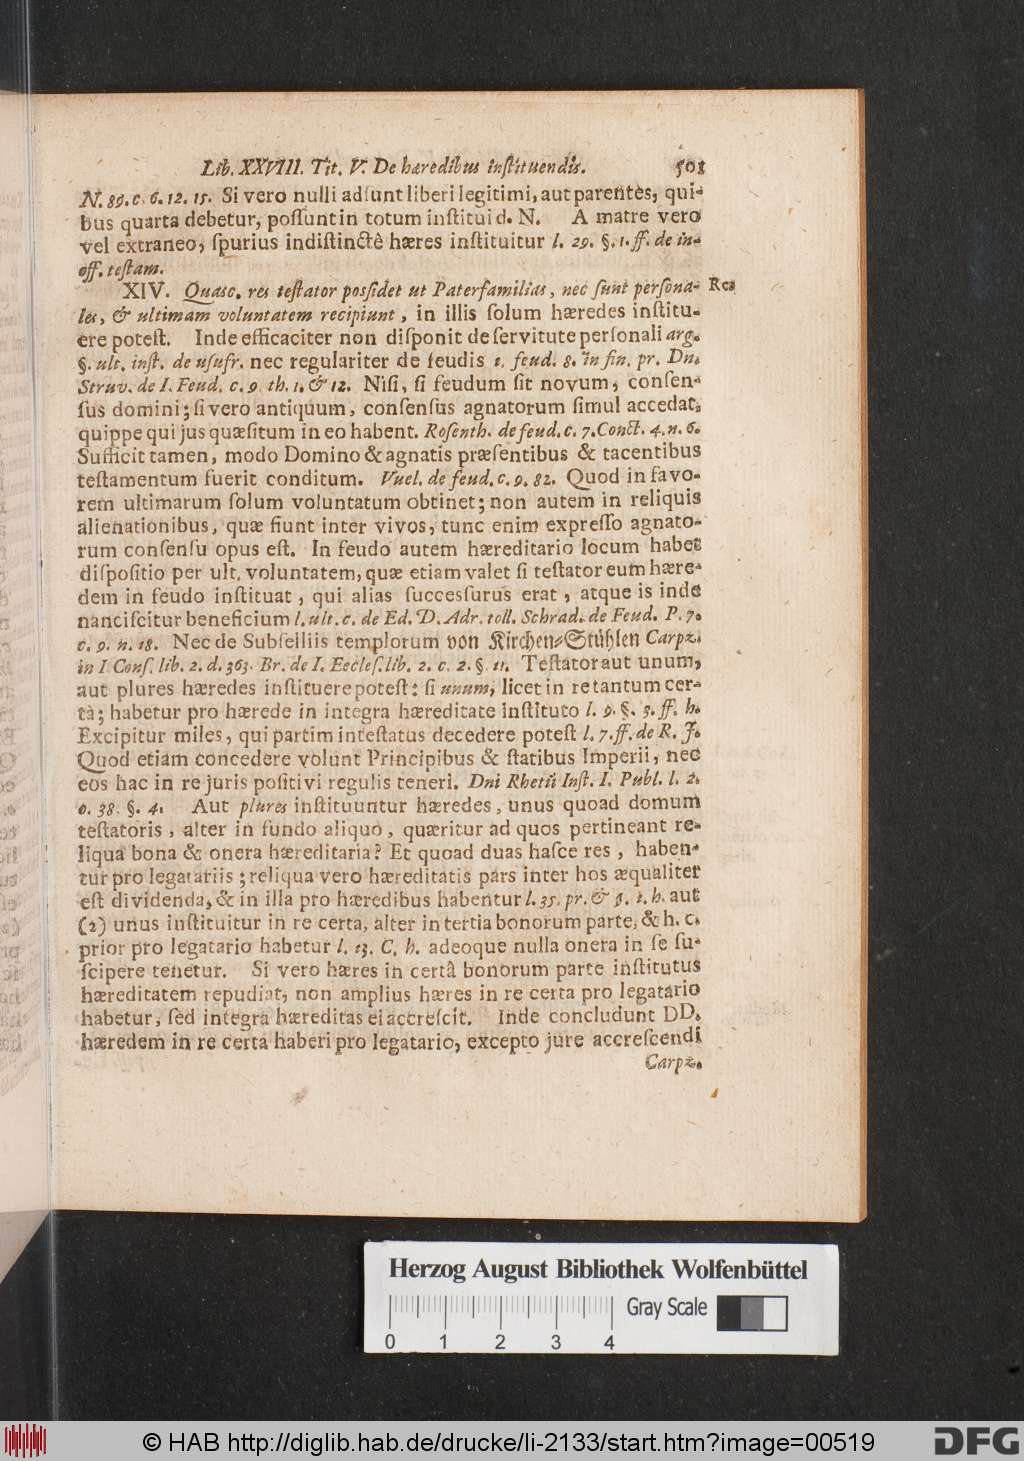 Lib. XXVIII. Tit. V. De hæredibus inſtituendis. 501
N. 89. c. 6. 12. 15. Si vero nulli adſunt liberi legitimi, aut parentes, qui-
bus quarta debetur, poſſunt in totum inſtitui d. N. A matre vero
vel extraneo, ſpurius indiſtinctè hæres inſtituitur l. 29. §. 1. ff. de in-
off. teſtam.
XIV. Quasc. res teſtator poſſidet ut Paterfamilias, nec ſunt perſona- Res
les, & ultimam voluntatem recipiunt, in illis ſolum hæredes inſtitu-
ere poteſt. Inde efficaciter non diſponit de ſervitute perſonali arg.
§. ult. inſt. de uſufr. nec regulariter de feudis 1. feud. 8. in fin. pr. Dn.
Struv. de I. Feud. c. 9. th. 1. & 12. Niſi, ſi feudum ſit novum, conſen-
ſus domini; ſi vero antiquum, conſenſus agnatorum ſimul accedat,
quippe qui jus quæſitum in eo habent. Roſenth. de feud. c. 7. Concl. 4. n. 6.
Sufficit tamen, modo Domino & agnatis præſentibus & tacentibus
teſtamentum fuerit conditum. Vuel. de feud. c. 9. 82. Quod in favo-
rem ultimarum ſolum voluntatum obtinet; non autem in reliquis
alienationibus, quæ fiunt inter vivos, tunc enim expreſſo agnato-
rum conſenſu opus eſt. In feudo autem hæreditario locum habet
diſpoſitio per ult. voluntatem, quæ etiam valet ſi teſtator eum hære-
dem in feudo inſtituat, qui alias ſucceſſurus erat, atque is inde
nanciſcitur beneficium l. ult. c. de Ed. D. Adr. toll. Schrad. de Feud. P. 7.
c. 9. n. 18. Nec de Subſelliis templorum von Kirchen-Stühlen Carpz.
in I. Conſ. lib. 2. d. 363. Br. de I. Eccleſ. lib. 2. c. 2. §. 11. Teſtator aut unum,
aut plures hæredes inſtituere poteſt: ſi unum, licet in re tantum cer-
tà; habetur pro hærede in integra hæreditate inſtituto l. 9. §. 3. ff. h.
Excipitur miles, qui partim inteſtatus decedere poteſt l. 7. ff. de R. J.
Quod etiam concedere volunt Principibus & ſtatibus Imperii, nec
eos hac in re juris poſitivi regulis teneri. Dni Rhetii Inſt. I. Publ. l. 2.
0. 38. §. 4. Aut plures inſtituuntur hæredes, unus quoad domum
teſtatoris, alter in fundo aliquo, quæritur ad quos pertineant re-
liqua bona & onera hæreditaria? Et quoad duas haſce res, haben-
tur pro legatariis; reliqua vero hæreditatis pars inter hos æqualiter
eſt dividenda, & in illa pro hæredibus habentur l. 35. pr. & §. 1. h. aut
(2) unus inſtituitur in re certa, alter in tertia bonorum parte, & h. c.
prior pro legatario habetur l. 13. C. h. adeoque nulla onera in ſe ſu-
ſcipere tenetur. Si vero hæres in certâ bonorum parte inſtitutus
hæreditatem repudiat, non amplius hæres in re certa pro legatario
habetur, ſed integra hæreditas ei accreſcit. Inde concludunt DD.
hæredem in re certa haberi pro legatario, excepto jure accreſcendi
Carpz.
Herzog August Bibliothek Wolfenbüttel
Gray Scale
0 1 2 3 4
© HAB http://diglib.hab.de/drucke/li-2133/start.htm?image=00519
DFG